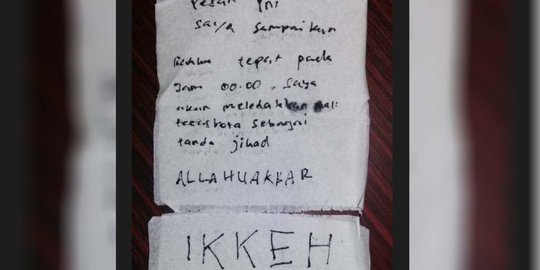 pesan ini
saya sampaikan
Bahwa tepat pada
Jam 00.00, saya
akan meledakkan
sebagai
tanda jihad
ALLAHUAKBAR
IKKEH